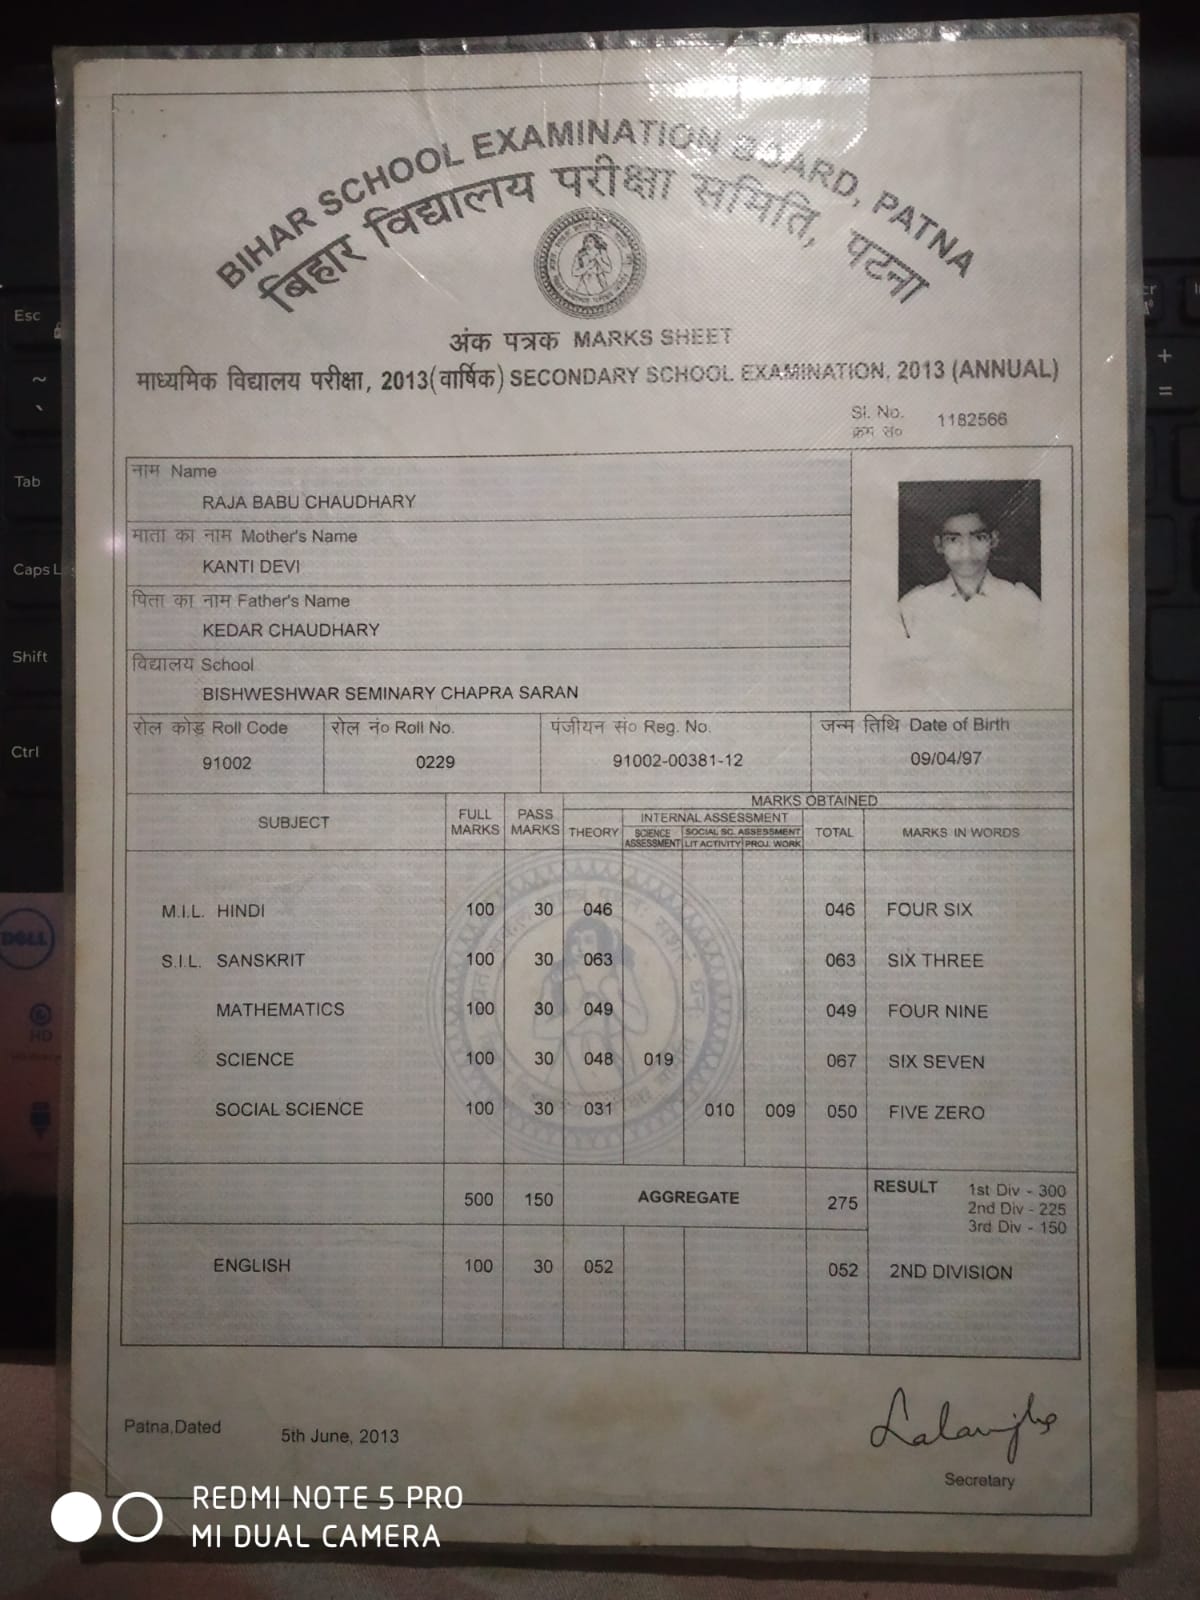 BIHAR SCHOOL EXAMINATION BOARD, PATNA
बिहार विद्यालय परीक्षा समिति, पटना
अंक पत्रक MARKS SHEET
माध्यमिक विद्यालय परीक्षा, 2013(वार्षिक) SECONDARY SCHOOL EXAMINATION, 2013 (ANNUAL)
Sl. No. 1182566
क्रम सं०
नाम Name
RAJA BABU CHAUDHARY
माता का नाम Mother's Name
KANTI DEVI
पिता का नाम Father's Name
KEDAR CHAUDHARY
विद्यालय School
BISHWESHWAR SEMINARY CHAPRA SARAN
रोल कोड़ Roll Code रोल नं० Roll No. पंजीयन सं० Reg. No. जन्म तिथि Date of Birth
91002 0229 91002-00381-12 09/04/97
SUBJECT FULL MARKS PASS MARKS MARKS OBTAINED
THEORY INTERNAL ASSESSMENT TOTAL MARKS IN WORDS
SCIENCE ASSESSMENT SOCIAL SC. ASSESSMENT
LIT ACTIVITY PROJ. WORK
M.I.L. HINDI 100 30 046 046 FOUR SIX
S.I.L. SANSKRIT 100 30 063 063 SIX THREE
MATHEMATICS 100 30 049 049 FOUR NINE
SCIENCE 100 30 048 019 067 SIX SEVEN
SOCIAL SCIENCE 100 30 031 010 009 050 FIVE ZERO
500 150 AGGREGATE 275 RESULT 1st Div - 300
2nd Div - 225
3rd Div - 150
ENGLISH 100 30 052 052 2ND DIVISION
Patna,Dated 5th June, 2013
Secretary
REDMI NOTE 5 PRO
MI DUAL CAMERA
Esc
~
Tab
Caps L
Shift
Ctrl
+
=
DELL
HD